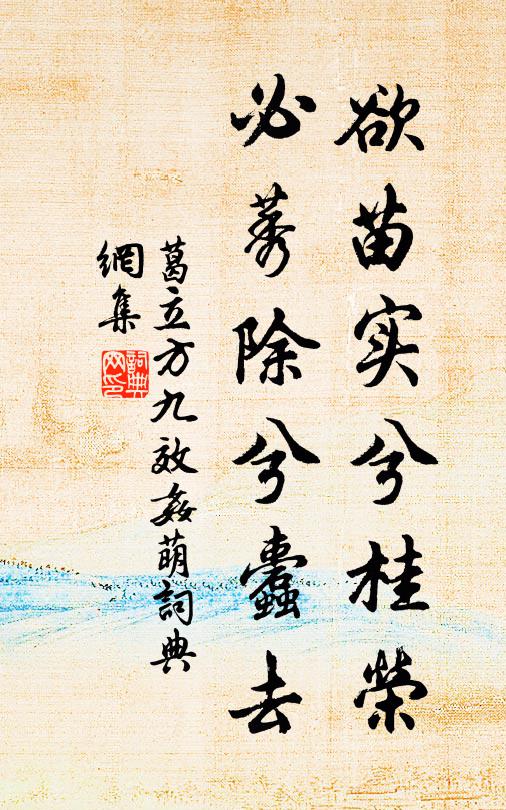 欲苗实兮桂榮
必莠除兮蠹去
葛立方九效姦萌詞典
網集
詞典
网印